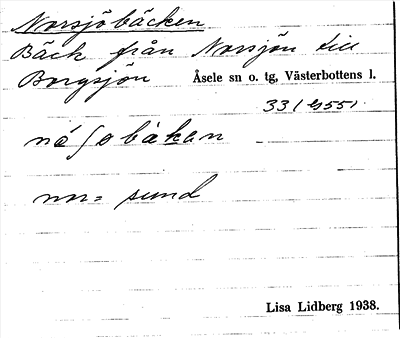 Norsjöbäcken
Bäck från Norsjön till
Borgsjön Åsele sn o. tg, Västerbottens l.
nå∫obäkan
nn = sund
Lisa Lidberg 1938.